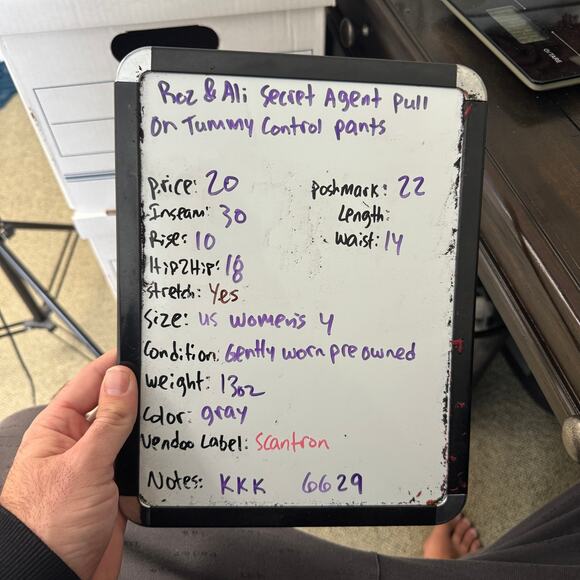 Roz & Ali Secret Agent Pull
On Tummy Control pants
Price: 20
Poshmark: 22
Inseam: 30
Length:
Rise: 10
Waist: 14
Hip2Hip: 18
Stretch: Yes
Size: US Women's 4
Condition: Gently worn pre owned
Weight: 13oz
Color: gray
Vendoo Label: Scantron
Notes: KKK 6629